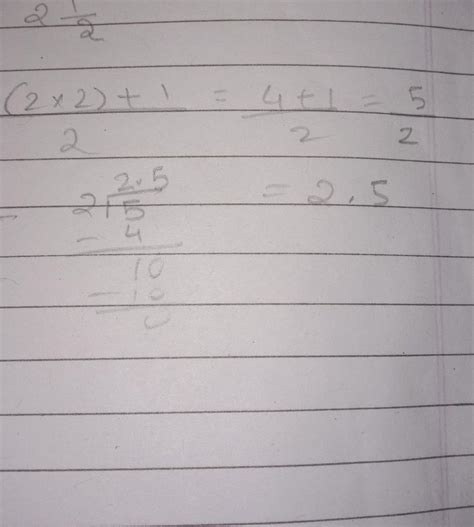 2 1/2
(2×2)+1/2 = 4+1/2 = 5/2
2.5 = 2.5
2)5
- 4
10
- 10
0